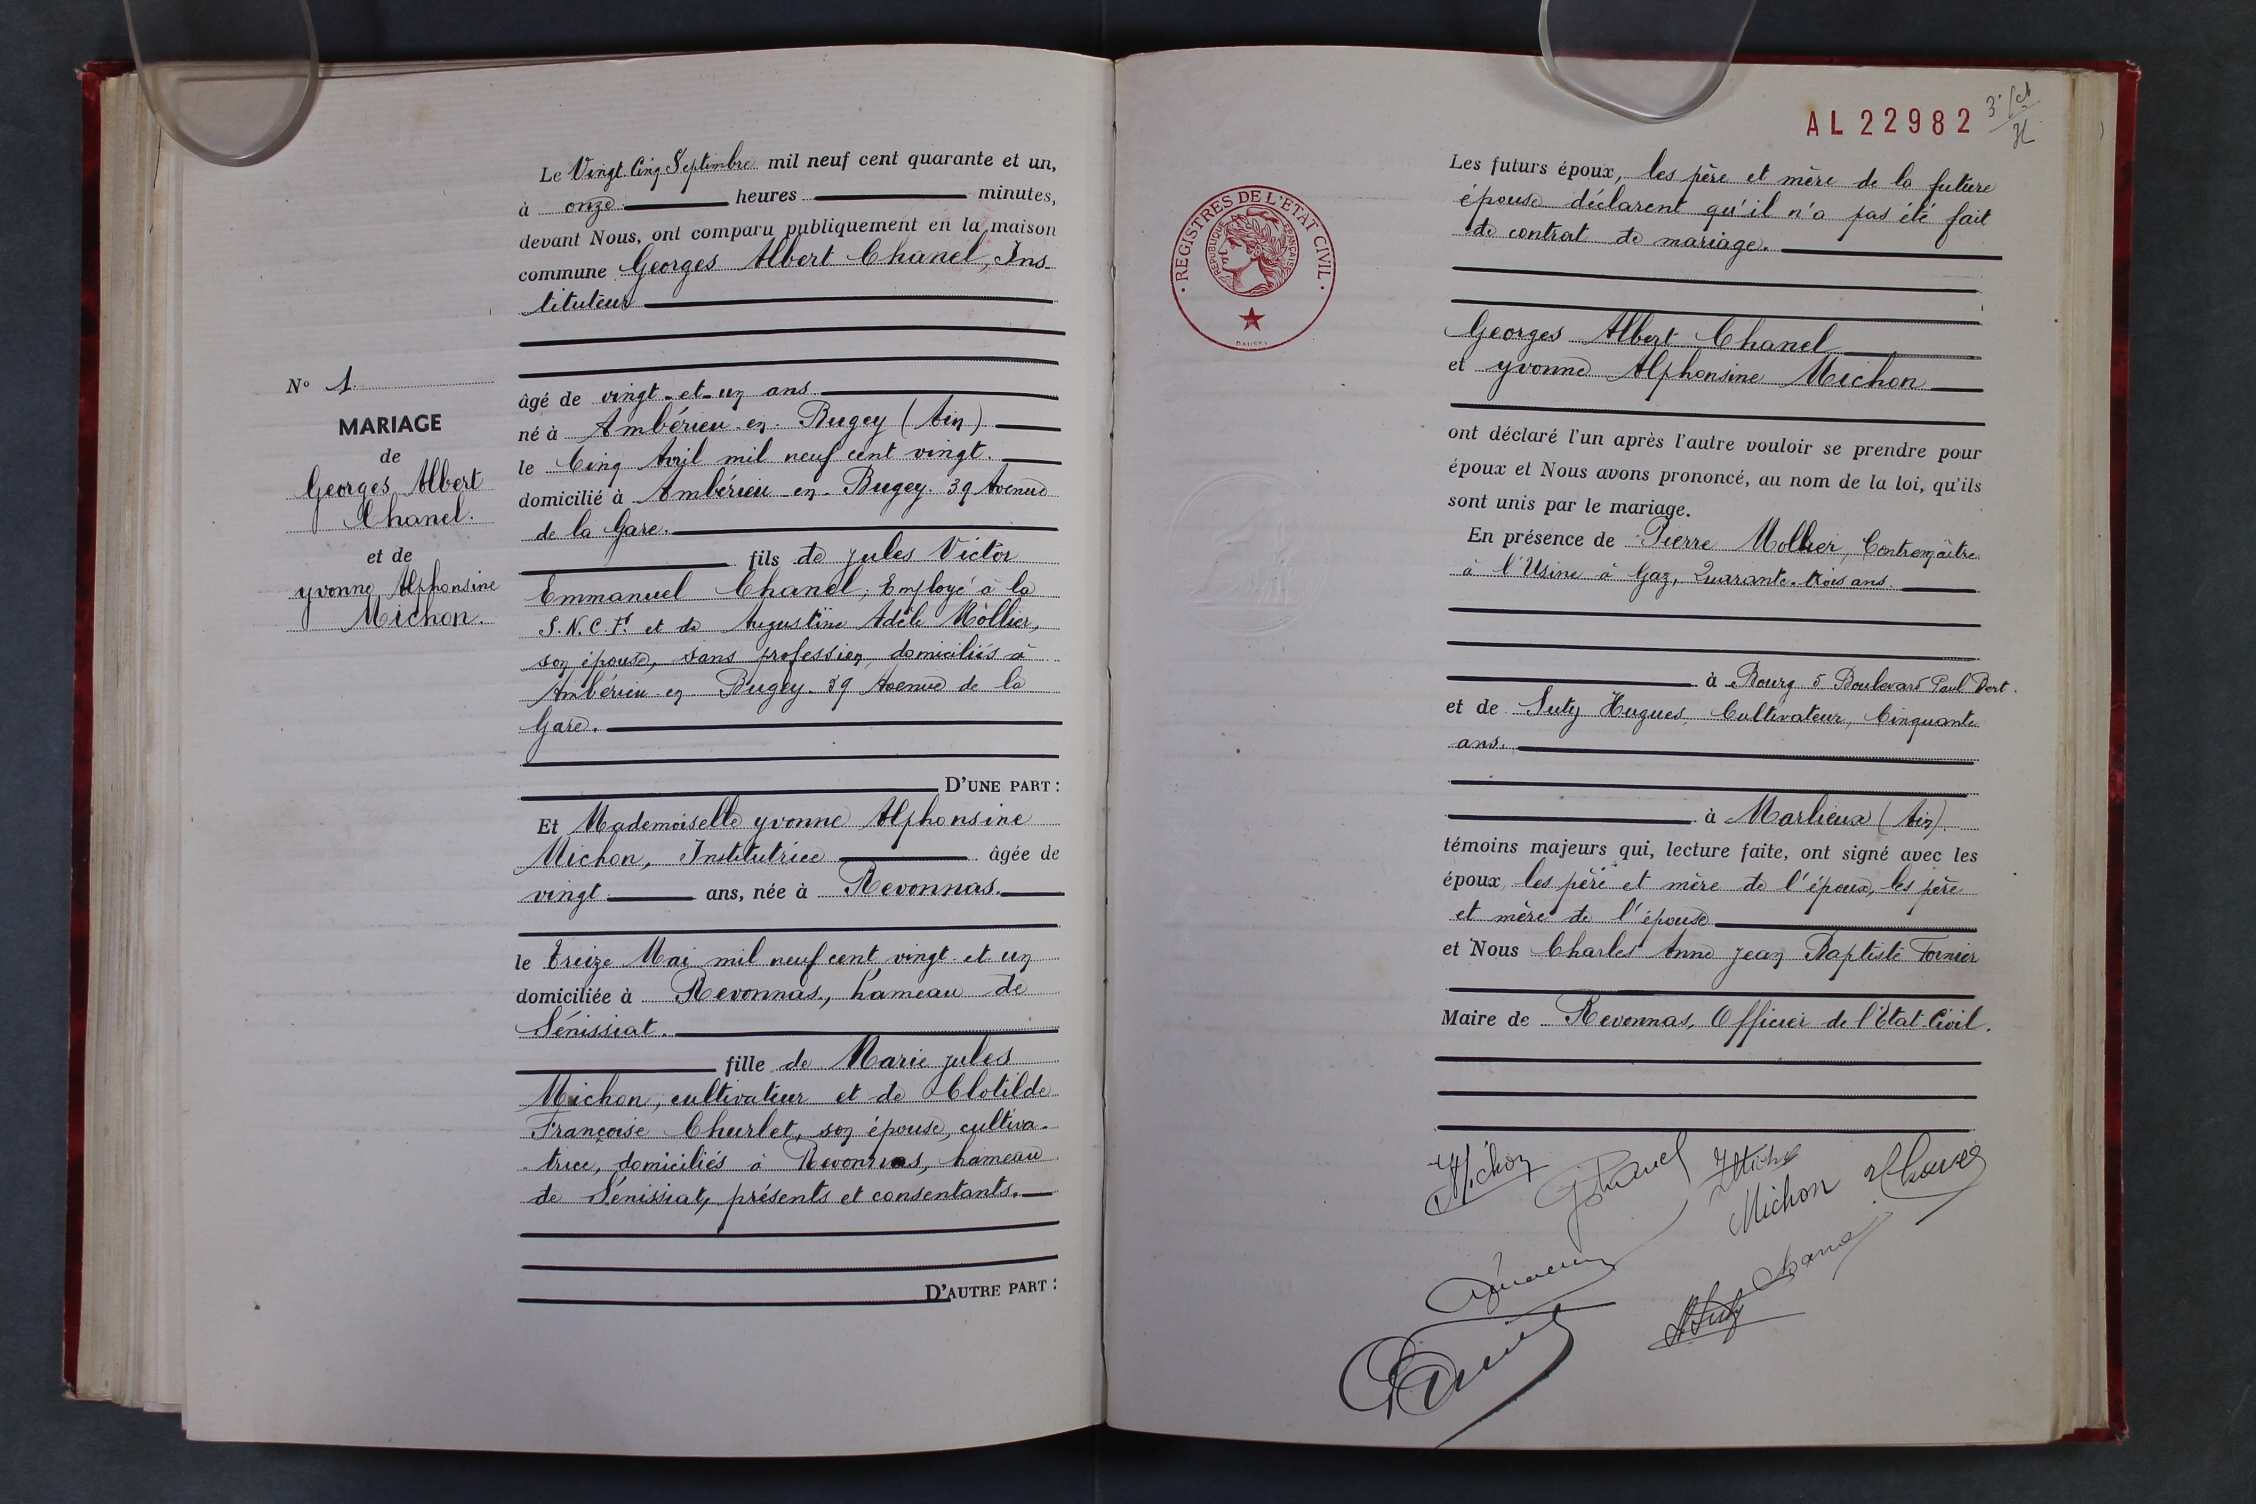 Le Vingt Cinq Septembre mil neuf cent quarante et un,
à onze heures minutes,
devant Nous, ont comparu publiquement en la maison
commune Georges Albert Chanel, Ins-
tituteur
N° 1
MARIAGE
de
Georges Albert
Chanel.
et de
yvonne Alphonsine
Michon.
âgé de vingt-et-un ans
né à Ambérieu-en-Bugey (Ain)
le Cinq Avril mil neuf cent vingt.
domicilié à Ambérieu-en-Bugey. 39 Avenue
de la Gare.
fils de jules Victor
Emmanuel Chanel, Employé à la
S.N.C.F. et de Augustine Adèle Mollier,
son épouse, sans profession, domiciliés à
Ambérieu-en-Bugey. 39 Avenue de la
Gare.
D'UNE PART:
Et Mademoiselle yvonne Alphonsine
Michon, Institutrice âgée de
vingt ans, née à Revonnas.
le treize Mai mil neuf cent vingt et un
domiciliée à Revonnas, hameau de
Sénissiat.
fille de Marie jules
Michon, cultivateur et de Clotilde
Françoise Churlet, son épouse, cultiva-
trice, domiciliés à Revonnas, hameau
de Sénissiat, présents et consentants.
D'AUTRE PART:
AL22982
REGISTRES DE L'ETAT CIVIL
REPUBLIQUE FRANÇAISE
Les futurs époux, les père et mère de la future
épouse déclarent qu'il n'a pas été fait
de contrat de mariage.
Georges Albert Chanel
et yvonne Alphonsine Michon
ont déclaré l'un après l'autre vouloir se prendre pour
époux et Nous avons prononcé, au nom de la loi, qu'ils
sont unis par le mariage.
En présence de Pierre Mollier, Contremaître
à l'Usine à Gaz, Quarante-trois ans.
à Bourg 5 Boulevard Paul Bert.
et de Suty Hugues, Cultivateur, Cinquante
ans.
à Marlieux (Ain)
témoins majeurs qui, lecture faite, ont signé avec les
époux, les père et mère de l'époux, les père
et mère de l'épouse
et Nous Charles Anne jean Baptiste Fornier
Maire de Revonnas, Officier de l'Etat-Civil.
Michon
GChanel
Michon
HSuty